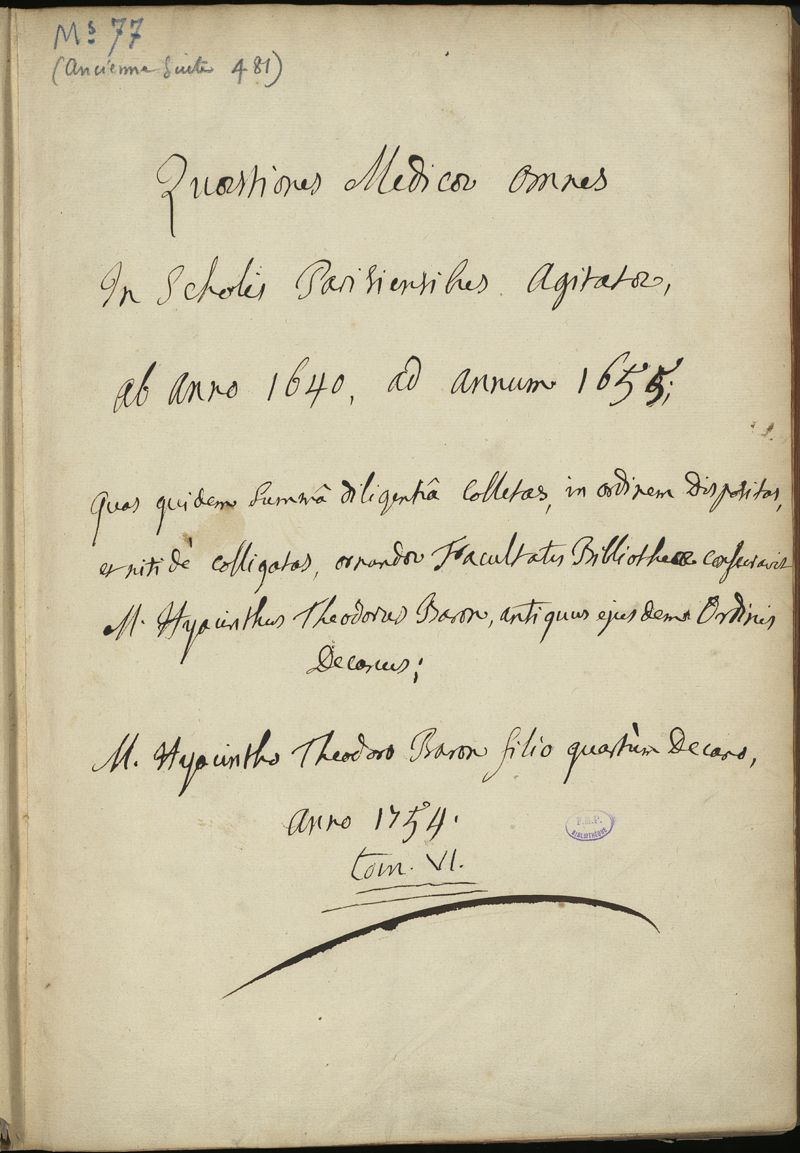 Ms 77
(Ancienne Suite 481)
Quæstiones Medicæ omnes
In Scholis Parisiensibus Agitatæ,
ab anno 1640, ad annum 1655;
quas quidem Summâ diligentiâ Colletas, in ordinem Dispositas,
et nitidè colligatas, ornandæ Facultatis Bibliothecæ consecravit
M. Hyacinthus Theodorus Baron, antiquus ejusdem Ordinis
Decanus;
M. Hyacintho Theodoro Baron filio quartùm Decano,
anno 1754.
tom. VI.
F.M.P.
BIBLIOTHÈQUE